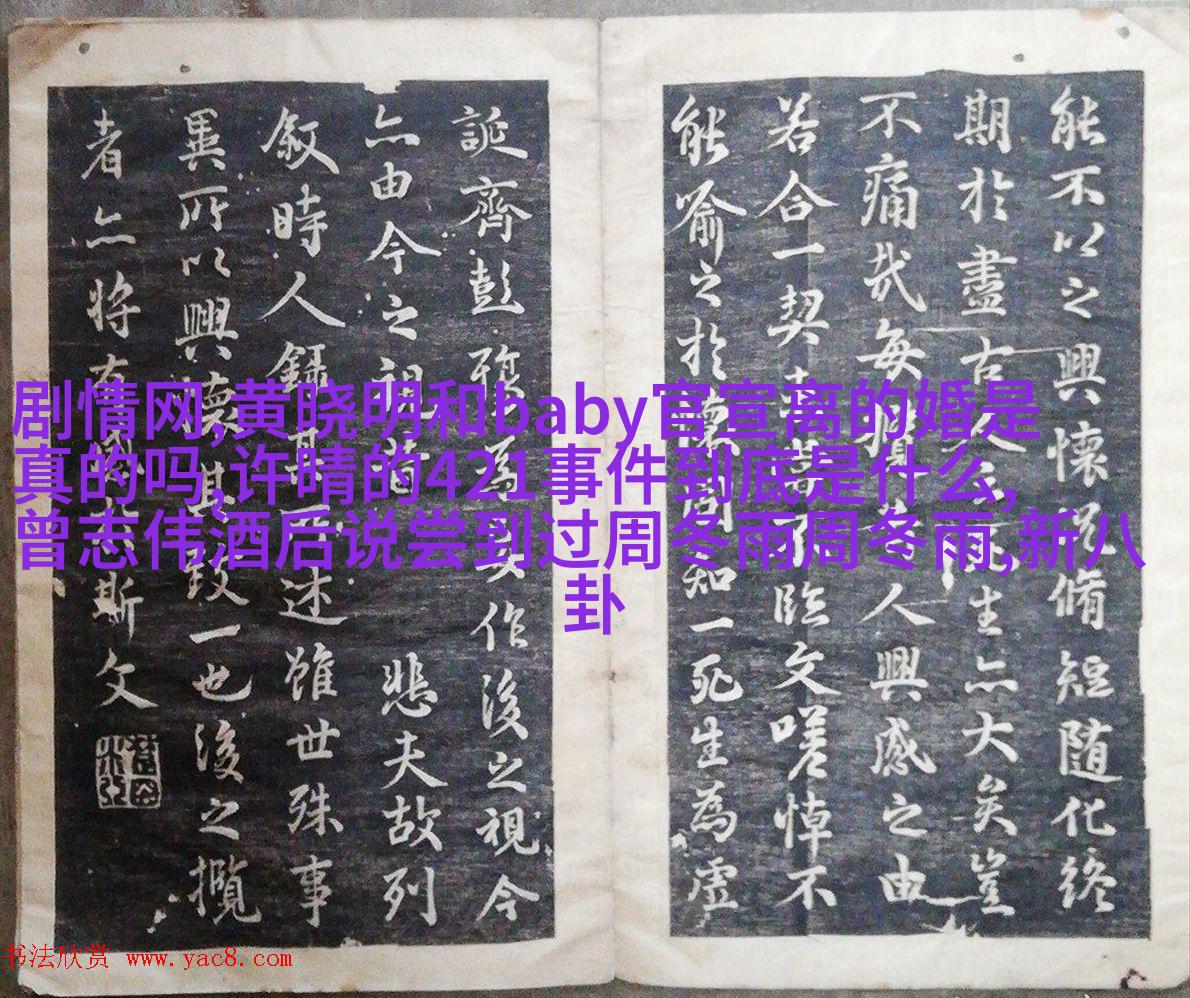 能不以之興懷况脩短随化終
期於盡古人云死生亦大矣豈
不痛哉每攬昔人興感之由
若合一契未甞不臨文嗟悼不
能喻之於懷固知一死生為虛
誕齊彭殤為妄作後之視今
亦由今之視昔悲夫故列
敘時人録其所述雖世殊事
異所以興懷其致一也後之攬
者亦将有感於斯文
剧情网,黄晓明和baby官宣离的婚是
真的吗,许晴的421事件到底是什么,
曾志伟酒后说尝到过周冬雨周冬雨,新八
卦
书法欣赏 www.yac8.com